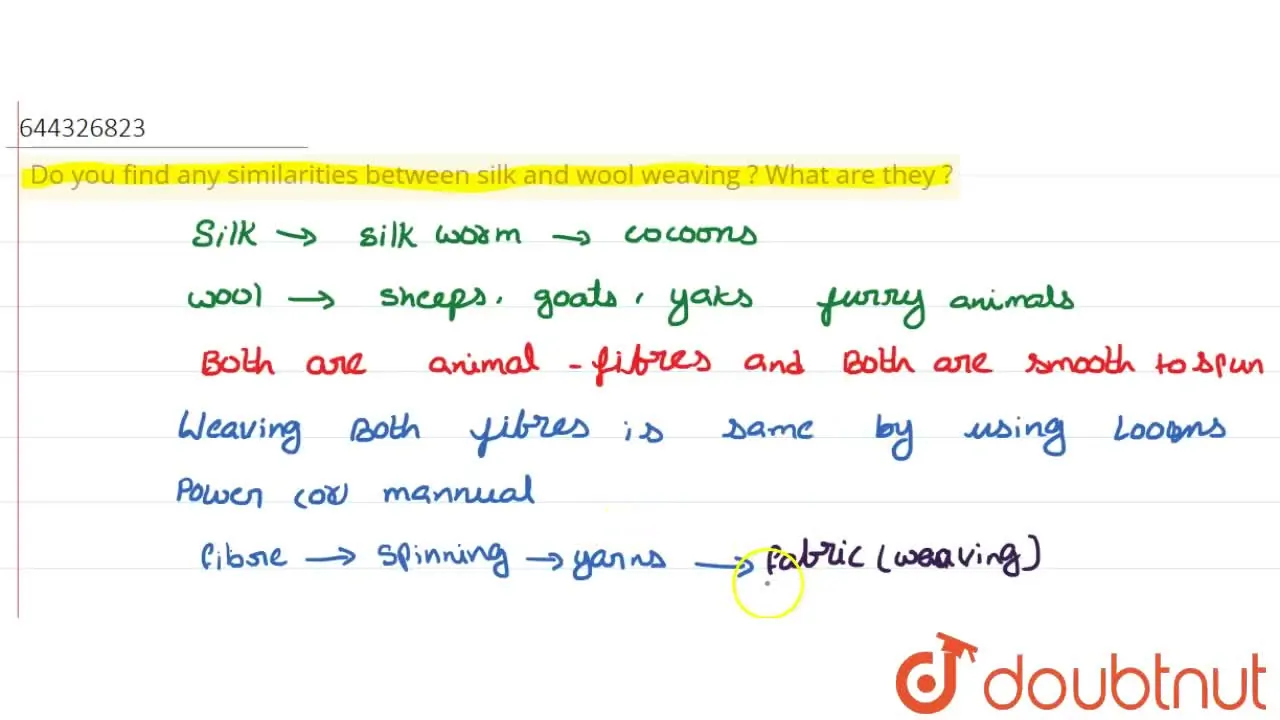 644326823
Do you find any similarities between silk and wool weaving ? What are they ?
Silk → silk worm → cocoons
wool → sheeps, goats, yaks furry animals
Both are animal - fibres and Both are smooth to spun
Weaving Both fibres is same by using Looms
Power (or) mannual
fibre → spinning → yarns → Fabric (weaving)
doubtnut